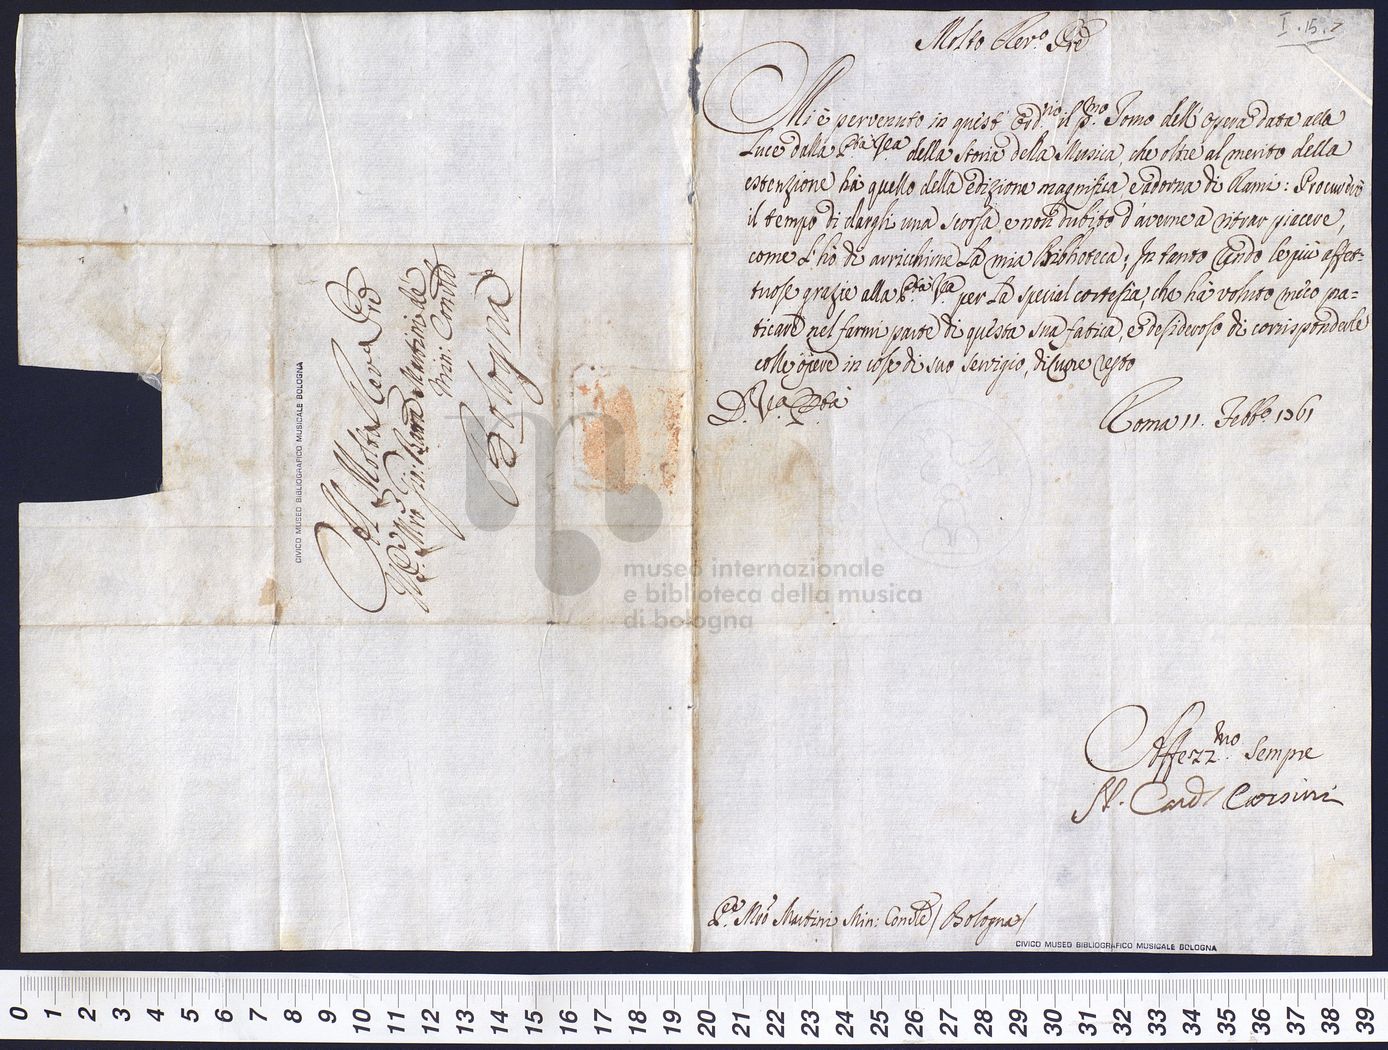 I. 15. 7
Molto Rev.º Pre
Mi è pervenuto in quest' Ord.rio il p.mo Tomo dell'Opera data alla
Luce dalla P.tà V.ra della Storia della Musica, che oltre al merito della
estenzione hà quello della edizione magnifica, e adorna di Rami: Procurerò
il tempo di dargli una scorsa, e non dubito d'averne a ritrar piacere,
come l'hò di arricchirne la mia Biblioteca; In tanto rendo le più affet-
tuose grazie alla P.tà V.ra per la special cortesia, che hà voluto meco pra-
ticare nel farmi parte di questa sua fatica, e desideroso di corrisponderle
coll'opere in cose di suo servigio, di cuore resto
D. V.ra P.tà
Roma 11. Febb.º 1761
Affezz.mo sempre
N. Card. Corsini
P.re Mro Martini Min: Con.le (Bologna)
CIVICO MUSEO BIBLIOGRAFICO MUSICALE BOLOGNA
Al Molto Rev. Pre
Gio: Batta Martini de
Min: Conv.li
Bologna
CIVICO MUSEO BIBLIOGRAFICO MUSICALE BOLOGNA
museo internazionale
e biblioteca della musica
di bologna
0 1 2 3 4 5 6 7 8 9 10 11 12 13 14 15 16 17 18 19 20 21 22 23 24 25 26 27 28 29 30 31 32 33 34 35 36 37 38 39